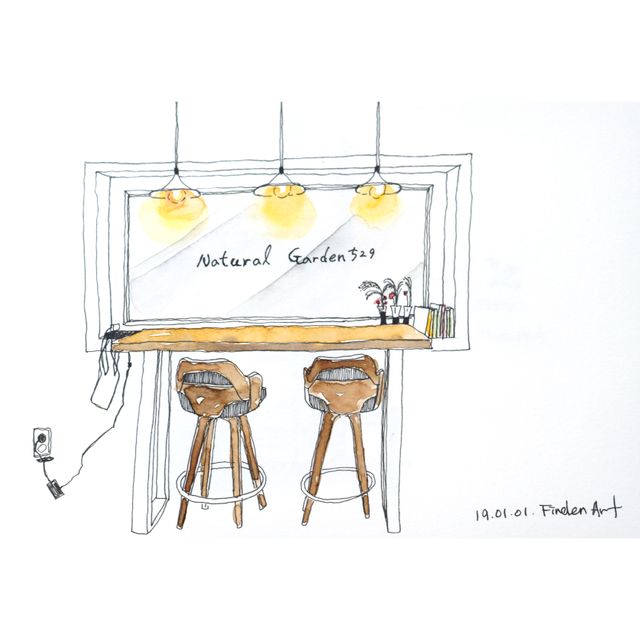 Natural Garden 529
19.01.01. Finden Art